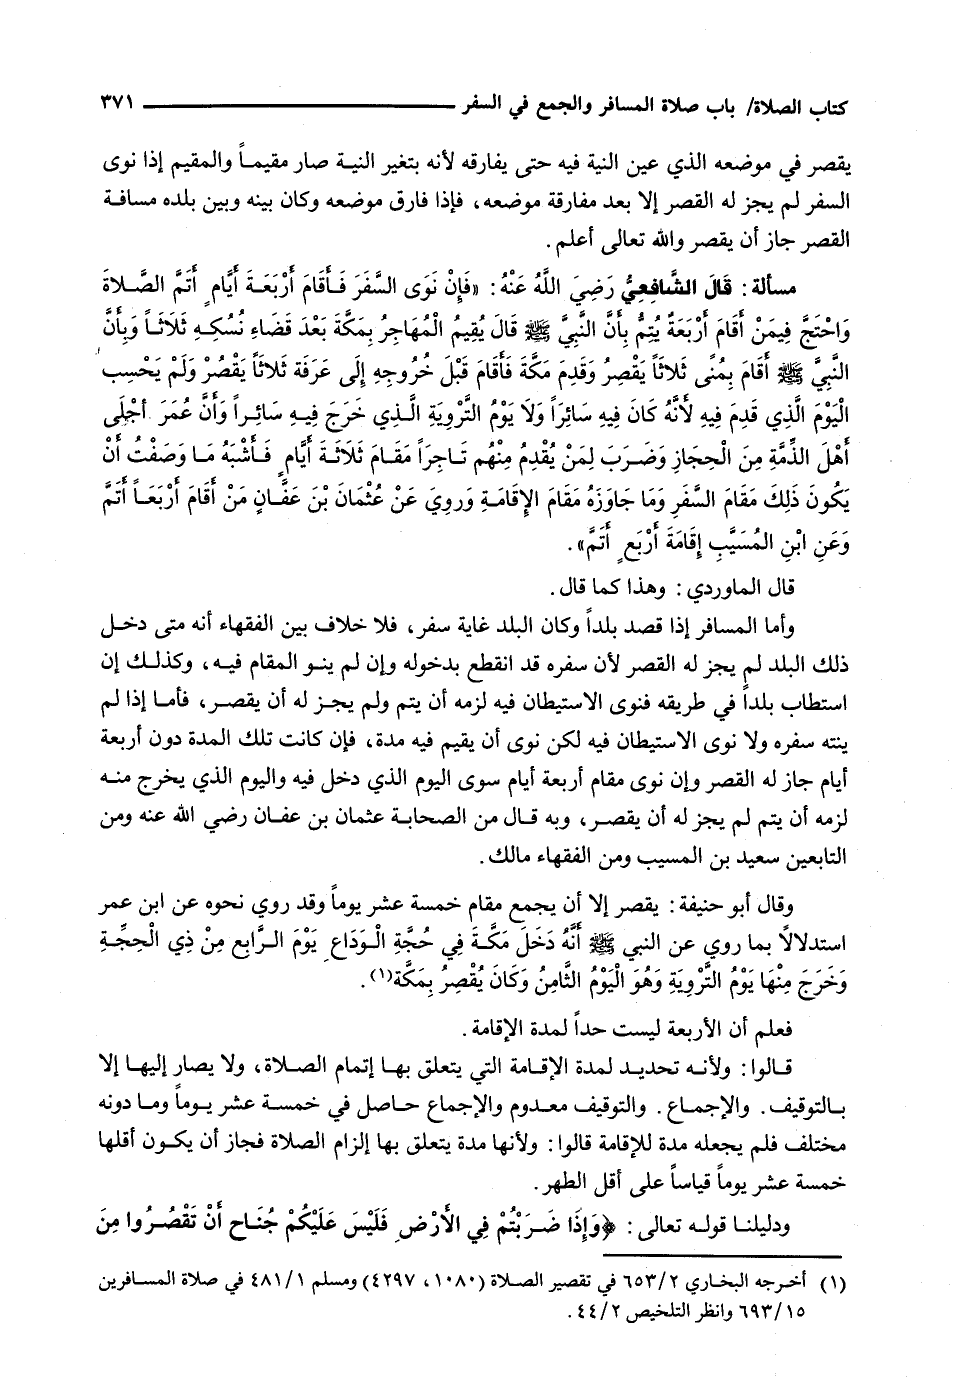 كتاب الصلاة/ باب صلاة المسافر والجمع في السفر ـــــــ ٣٧١
يقصر في موضعه الذي عين النية فيه حتى يفارقه لأنه بتغير النية صار مقيماً والمقيم إذا نوى
السفر لم يجز له القصر إلا بعد مفارقة موضعه، فإذا فارق موضعه وكان بينه وبين بلده مسافة
القصر جاز أن يقصر والله تعالى أعلم.
مسألة: قَالَ الشَّافِعِيُّ رَضِيَ اللَّهُ عَنْهُ: «فَإِنْ نَوَى السَّفَرَ فَأَقَامَ أَرْبَعَةَ أَيَّامٍ أَتَمَّ الصَّلاَةَ
وَاحْتَجَّ فِيمَنْ أَقَامَ أَرْبَعَةً يُتِمُّ بِأَنَّ النَّبِيَّ ﷺ قَالَ يُقِيمُ الْمُهَاجِرُ بِمَكَّةَ بَعْدَ قَضَاءِ نُسُكِهِ ثَلاَثَاً وَبِأَنَّ
النَّبِيَّ ﷺ أَقَامَ بِمُنًى ثَلاَثاً يَقْصُرُ وَقَدِمَ مَكَّةَ فَأَقَامَ قَبْلَ خُرُوجِهِ إِلَى عَرَفَةَ ثَلاَثاً يَقْصُرْ وَلَمْ يَحْسِب
الْيَوْمَ الَّذِي قَدِمَ فِيهِ لأَنَّهُ كَانَ فِيهِ سَائِرَاً وَلاَ يَوْمُ التَّرْوِيَةِ الَّذِي خَرَجَ فِيهِ سَائِراً وَأَنَّ عُمَرَ أَجْلَى
أَهْلَ الذِّمَّةِ مِنَ الْحِجَازِ وَضَرَبَ لِمَنْ يُقْدِمُ مِنْهُم تَاجِرَاً مَقَامَ ثَلاَثَةِ أَيَّامٍ فَأَشْبَهُ مَا وَصَفْتُ أَنْ
يَكُونَ ذَلِكَ مَقَامَ السَّفَرِ وَمَا جَاوَزَهُ مَقَامَ الإِقَامَةِ وَرُوِيَ عَنْ عُثْمَانَ بْنِ عَفَّانٍ مَنْ أَقَامَ أَرْبَعَاً أَتَمَّ
وَعَنِ ابْنِ الْمُسَيَّبِ إِقَامَةَ أَرْبَعٍ أَتَمَّ».
قال الماوردي: وهذا كما قال.
وأما المسافر إذا قصد بلداً وكان البلد غاية سفر، فلا خلاف بين الفقهاء أنه متى دخل
ذلك البلد لم يجز له القصر لأن سفره قد انقطع بدخوله وإن لم ينو المقام فيه، وكذلك إن
استطاب بلداً في طريقه فنوى الاستيطان فيه لزمه أن يتم ولم يجز له أن يقصر، فأما إذا لم
ينته سفره ولا نوى الاستيطان فيه لكن نوى أن يقيم فيه مدة، فإن كانت تلك المدة دون أربعة
أيام جاز له القصر وإن نوى مقام أربعة أيام سوى اليوم الذي دخل فيه واليوم الذي يخرج منه
لزمه أن يتم لم يجز له أن يقصر، وبه قال من الصحابة عثمان بن عفان رضي الله عنه ومن
التابعين سعيد بن المسيب ومن الفقهاء مالك.
وقال أبو حنيفة: يقصر إلا أن يجمع مقام خمسة عشر يوماً وقد روي نحوه عن ابن عمر
استدلالاً بما روي عن النبي ﷺ أَنَّهُ دَخَلَ مَكَّةَ فِي حُجَّةِ الْوَدَاعِ يَوْمَ الرَّابِعِ مِنْ ذِي الْحِجَّةِ
وَخَرَجَ مِنْهَا يَوْمُ التَّرْوِيَةِ وَهُوَ الْيَوْمُ الثَّامِنُ وَكَانَ يُقْصِرُ بِمَكَّةَ(١).
فعلم أن الأربعة ليست حداً لمدة الإقامة.
قالوا: ولأنه تحديد لمدة الإقامة التي يتعلق بها إتمام الصلاة، ولا يصار إليها إلا
بالتوقيف. والإجماع. والتوقيف معدوم والإجماع حاصل في خمسة عشر يوماً وما دونه
مختلف فلم يجعله مدة للإقامة قالوا: ولأنها مدة يتعلق بها إلزام الصلاة فجاز أن يكون أقلها
خمسة عشر يوماً قياساً على أقل الطهر.
ودليلنا قوله تعالى: ﴿وَإِذَا ضَرَبْتُمْ فِي الأَرْضِ فَلَيْسَ عَلَيْكُمْ جُنَاح أَنْ تَقْصُرُوا مِنَ
(١) أخرجه البخاري ٦٥٣/٢ في تقصير الصلاة (١٠٨٠، ٤٢٩٧) ومسلم ٤٨١/١ في صلاة المسافرين
٦٩٣/١٥ وانظر التلخيص ٤٤/٢.